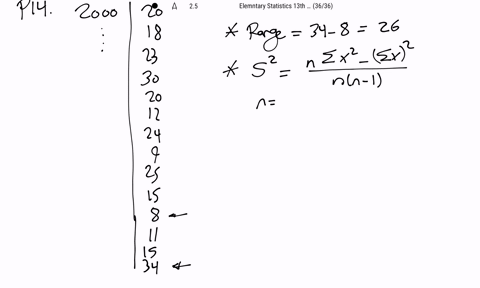 P14. 2000 20 Δ 2.5 Elemntary Statistics 13th ... (36/36)
18 * Range = 34-8 = 26
23
30 * S² = n Σx² - (Σx)² / n(n-1)
20
12 n=
24
9
25
15
8 ←
11
15
34 ←